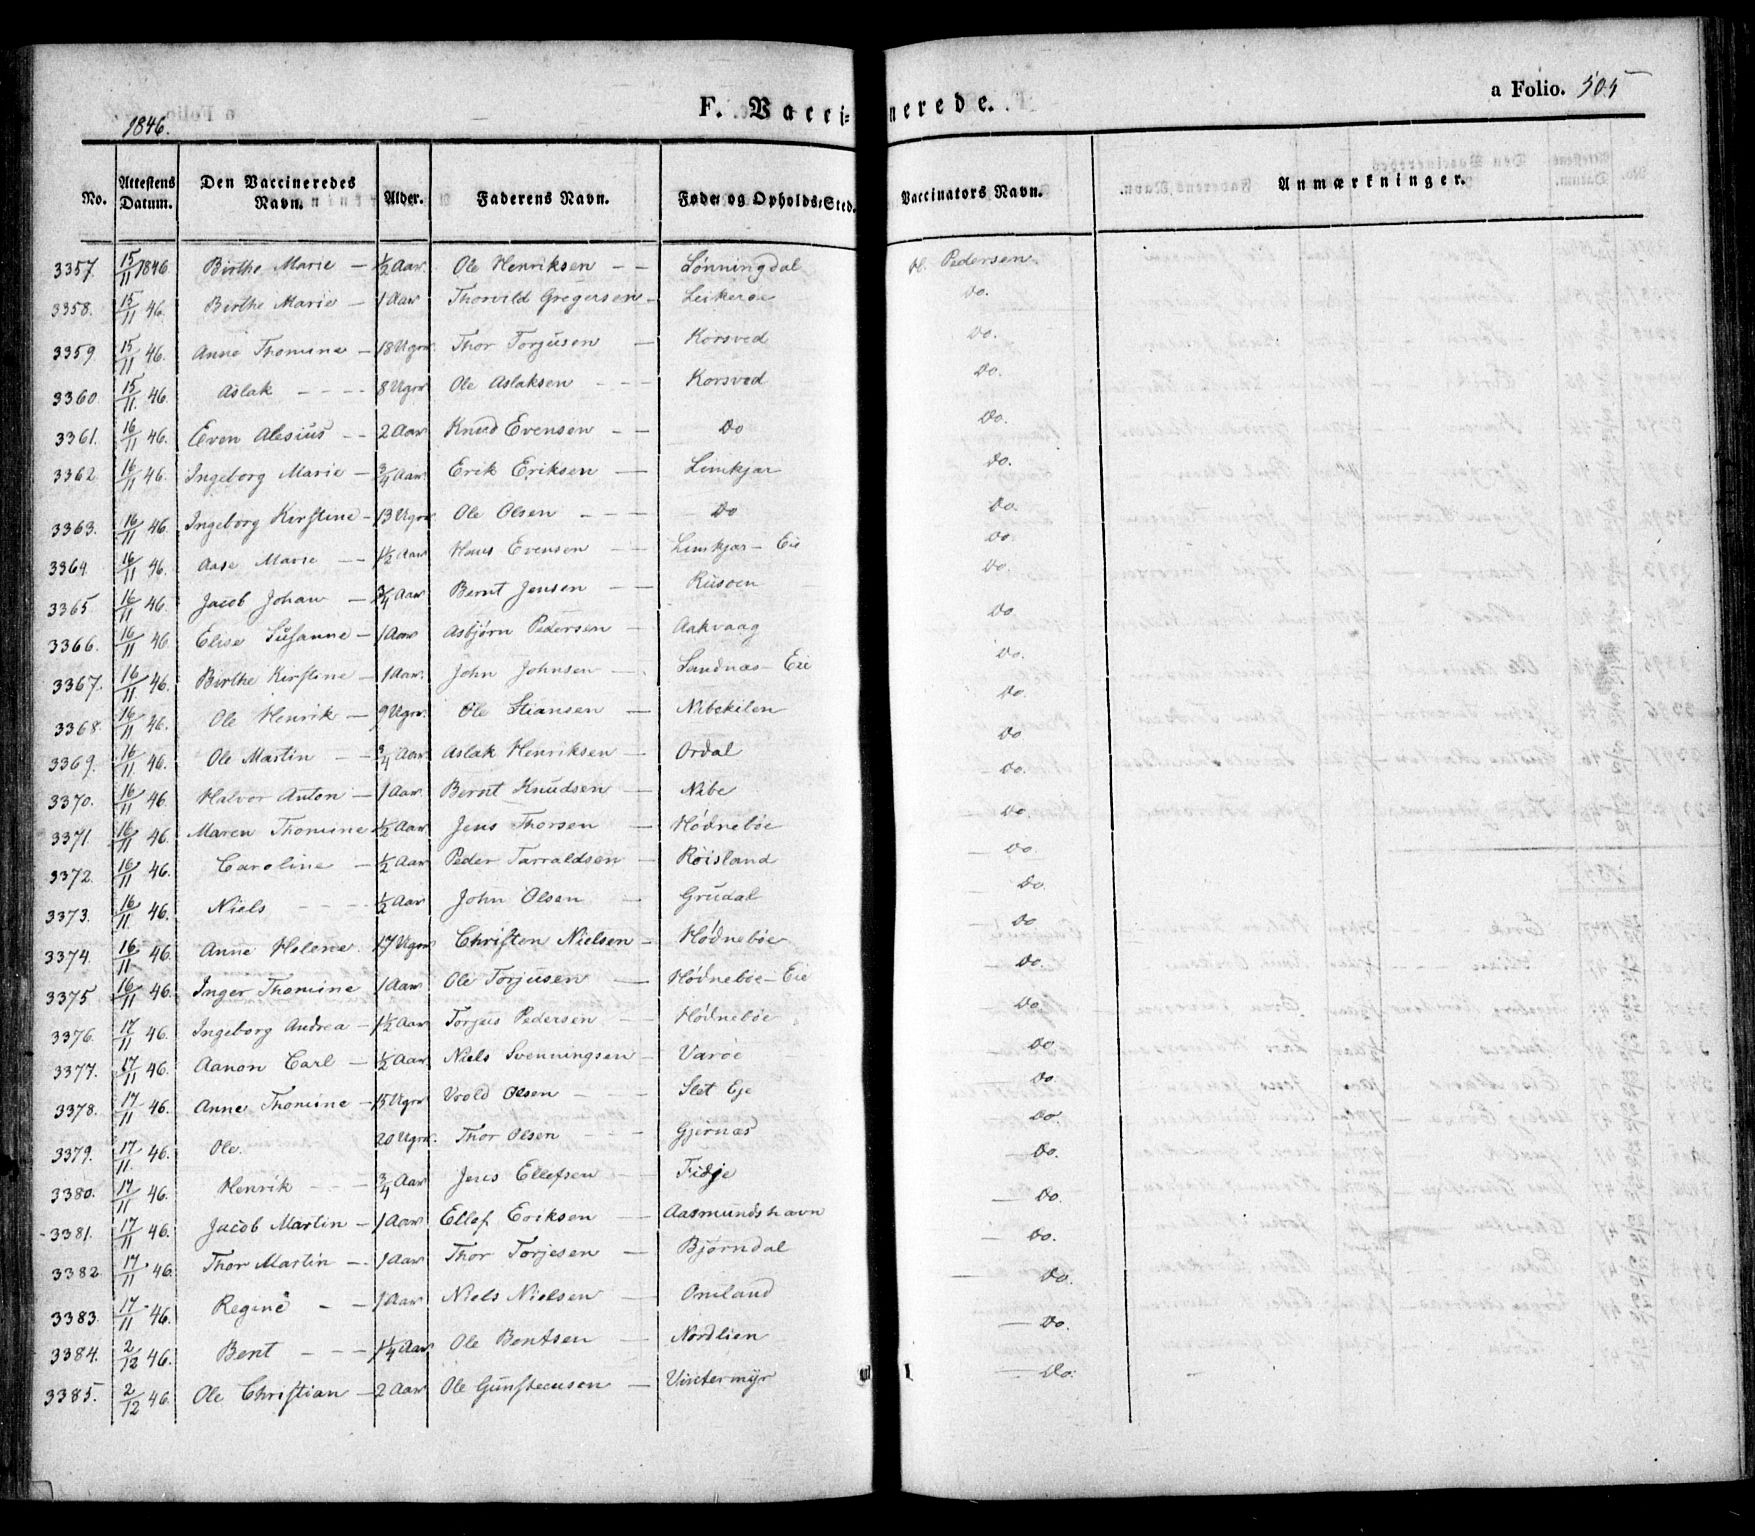 F. Vaccinerede.
a Folio. 505
1846.
No. Attestens Datum. Den Vaccineredes Navn. Alder. Faderens Navn. Føde og Opholds-Sted. Vaccinators Navn. Anmærkninger.
3357. 15/11 1846 Birthe Marie — 1/2 Aar Ole Henriksen — — Lønningdal Pedersen
3358. 15/11 46. Birthe Marie — 1 Aar Thorvild Gregersen — Leikeroe Do.
3359 15/11 46. Anne Thomine — 18 Uger Thor Torjusen — Korsved Do.
3360. 15/11. 46. Aslak — — — 8 Uger Ole Aslaksen — — — Korsved Do.
3361. 16/11 46. Even Alesius — — 2 Aar Knud Evensen — — Do Do.
3362. 16/11 46. Ingeborg Marie — 3/4 Aar Erik Eriksen — Limkjær Do.
3363. 16/11 46. Ingeborg Kirstine — 13 Uger Ole Olsen — — — Do Do.
3364 16/11 46. Aase Marie — — 1 1/2 Aar Hans Evensen — — Limkjær — Eie Do.
3365 16/11 46. Jacob Johan — 3/4 Aar Bernt Jensen — — Risøen Do.
3366. 16/11 46 Elise Susanne — 1 Aar Asbjørn Pedersen — Aakvaag Do.
3367. 16/11. 46. Birthe Kirstine — 1 Aar. John Johnsen — Sandnæs — Eie Do.
3368. 16/11 46. Ole Henrik — 9 Uger. Ole Stiansen — Nibekilen Do.
3369. 16/11 46. Ole Martin — — 3/4 Aar Aslak Henriksen — Ordal Do
3370. 16/11 46. Halvor Anton — 1 Aar Bernt Knudsen — Nibe — Do.
3371. 16/11 46. Maren Thomine 1/2 Aar Jens Thorsen — Hødnebøe Do.
3372. 16/11 46. Caroline — 1/2 Aar Peder Tarraldsen — Røisland — Do.
3373. 16/11 46. Niels — — — 1/2 Aar John Olsen — Grudal — Do.
3374. 16/11 46. Anne Helene. 17 Uger Christen Nielsen — Hødnebøe — Do
3375. 16/11 46. Inger Thomine 1 Aar Ole Torjusen — Hødnebøe — Eie — Do.
3376. 17/11 46. Ingeborg Andrea — 1 1/2 Aar Torjus Pedersen — Hødnebøe — Do.
3377. 17/11 46. Aanon Carl — 1/2 Aar Niels Svenningsen — Varøe — Do
3378. 17/11 46. Anne Thomine — 15 Uger Vrold Olsen — — Slet Eje — Do.
3379. 17/11. 46. Ole. 20 Uger. Thor Olsen — — Gjernæs — Do.
3380. 17/11 46. Henrik — — — 3/4 Aar Jens Ellefsen — — Fidje — Do.
3381. 17/11 46. Jacob Martin — 1 Aar Ellef Eriksen — — Aasmundshavn — Do.
3382 17/11 46. Thor Martin — 1 Aar Thor Torjesen — Bjørndal — Do.
3383. 17/11 46. Regine — — 1 Aar Niels Nielsen — Omland — Do.
3384. 2/12 46. Bent — — — 1 1/4 Aar Ole Bentsen — Nordlien — Do.
3385. 2/12 46 Ole Christian — 2 Aar Ole Gunsteensen — Vintermyr — Do.